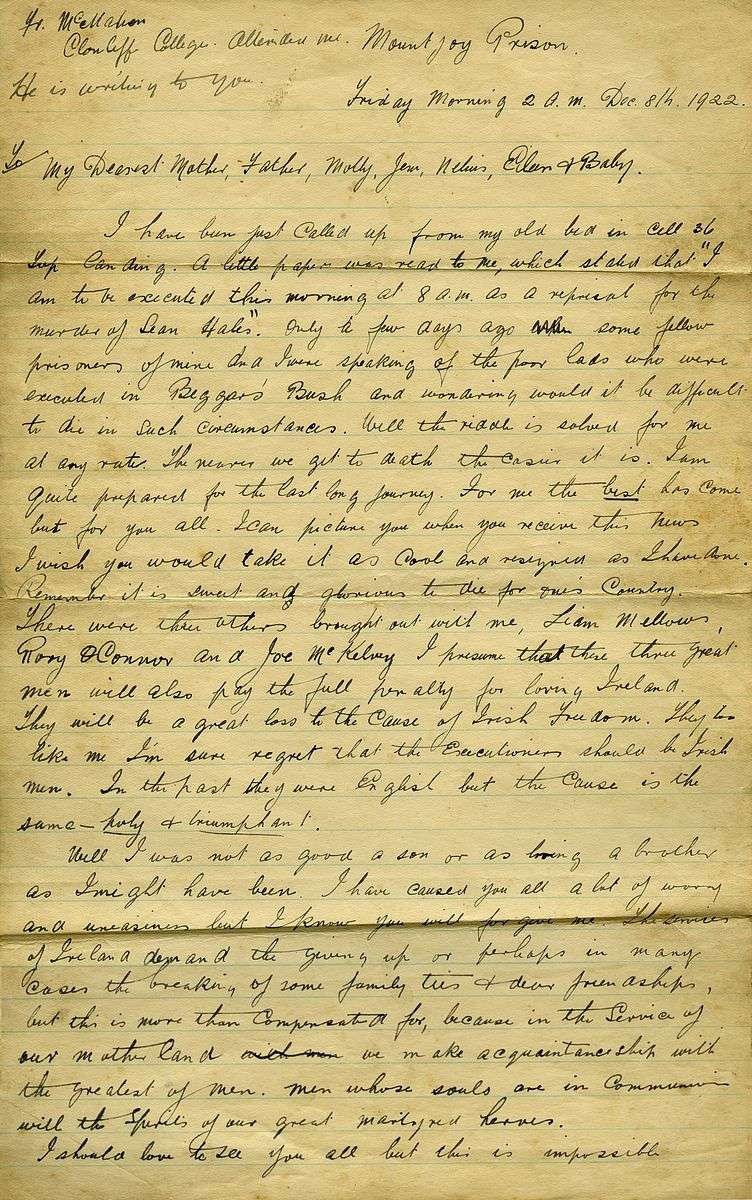 Fr. McMahon
Clonliffe College. Attended me. Mountjoy Prison.
He is writing to you.
Friday Morning 2 A.m. Dec. 8th. 1922.
To My Dearest Mother, Father, Molly, Jem, Nelius, Eileen & Baby.
I have been just called up from my old bed in cell 36
Top landing. A little paper was read to me, which stated that "I
am to be executed this morning at 8 a.m. as a reprisal for the
murder of Sean Hales". Only a few days ago when some fellow
prisoners of mine and I were speaking of the poor lads who were
executed in Beggar's Bush and wondering would it be difficult
to die in such circumstances. Well the riddle is solved for me
at any rate. The nearer we get to death the easier it is. I am
quite prepared for the last long journey. For me the best has come
but for you all. I can picture you when you receive this news
I wish you would take it as cool and resigned as I have done.
Remember it is sweet and glorious to die for one's Country.
There were three others brought out with me, Liam Mellows,
Rory O'Connor and Joe McKelvey I presume that these three great
men will also pay the full penalty for loving Ireland.
They will be a great loss to the Cause of Irish Freedom. They too
like me I'm sure regret that the Executioners should be Irish
men. In the past they were English but the Cause is the
same - holy & triumphant.
Well I was not as good a son or as loving a brother
as I might have been. I have caused you all a lot of worry
and uneasiness but I know you will forgive me. The services
of Ireland demand the giving up or perhaps in many
cases the breaking of some family ties & dear friendships,
but this is more than Compensated for, because in the Service of
our motherland we make acquaintanceship with
the greatest of men. men whose souls are in Communion
with the Spirits of our great martyred heroes.
I should love to see you all but this is impossible